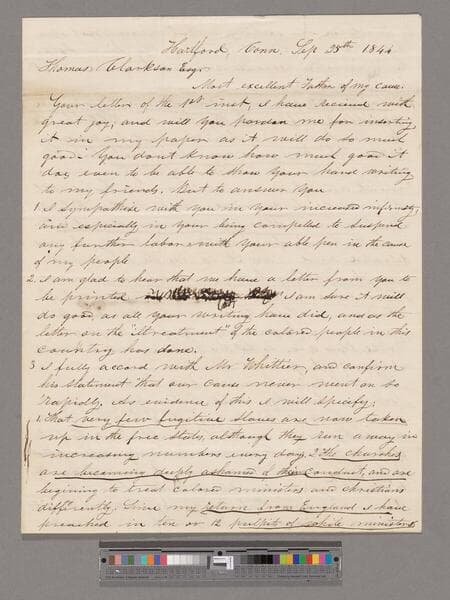 Hartford, Conn, Sep 28th 1844
Thomas Clarkson Esqr
Most excellent Father of my cause.
Your letter of the 1st inst, I have recieved with
great joy, and will you pardon me for inserting
it in my paper as it will do so much
good. You dont know how much good it
doe, even to be able to show your hand writing
to my friends. But to answer you
1. I sympathise with you in your increased infirmity,
and especially in your being compelled to suspend
any further labor with your able pen in the cause
of my people
2. I am glad to hear that we have a letter from you to
be printed I am sure it will
do good, as all your writing have did, and as the
letter on the "ill treatment" of the colored people in this
country has done.
3 I fully accord with Mr Whittier, and confirm
his statement that our cause never went on so
rapidly. As evidence of this I will specify;
1. That very few fugitive slaves are now taken
up in the free states, although they run away in
increasing numbers every day, 2 The churches
are becoming deeply ashamed of their conduct, and are
begining to treat colored ministers and christians
differently. Since my return from England I have
preached in ten or 12 pulpits of white ministers